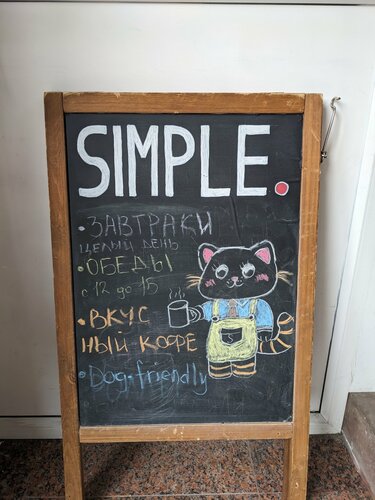 SIMPLE.
•ЗАВТРАКИ
ЦЕЛЫЙ ДЕНЬ
•ОБЕДЫ
с 12 до 15
•ВКУС
НЫЙ КОФЕ
•Dog-friendly